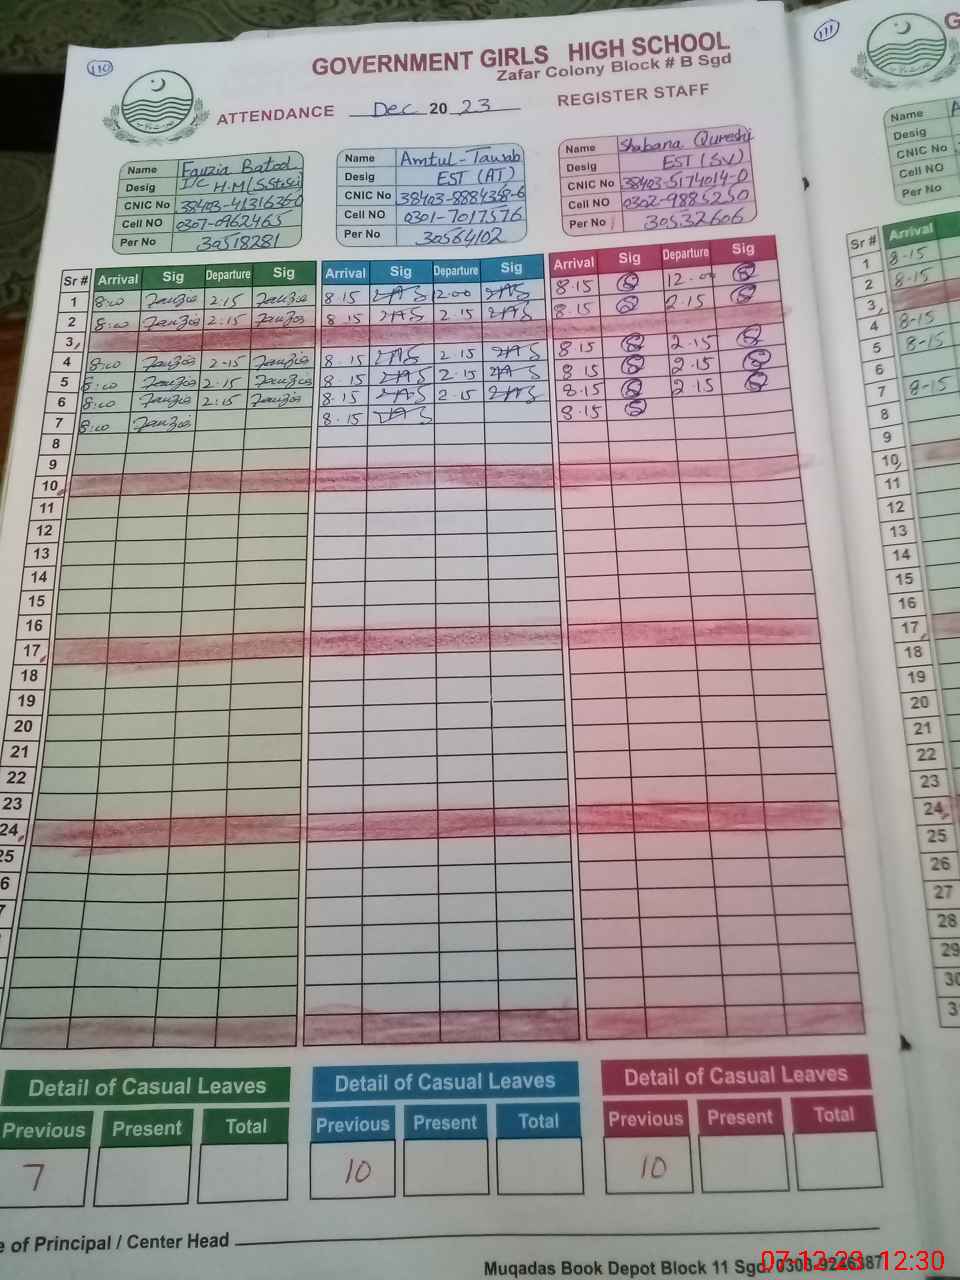 110
GOVERNMENT GIRLS HIGH SCHOOL
Zafar Colony Block # B Sgd
ATTENDANCE Dec 2023 REGISTER STAFF
Name Fauzia Batool
Desig I/C H.M
CNIC No
Cell NO 0307-0962465
Per No 30518281
Name Amtul-Tawab
Desig EST (AT)
CNIC No 38403-8884358-6
Cell NO 0301-7017576
Per No 30564102
Name Shabana Qureshi
Desig EST (SV)
CNIC No 38403-5174014-0
Cell NO 0302-9885250
Per No 30532606
Sr # Arrival Sig Departure Sig Arrival Sig Departure Sig Arrival Sig Departure Sig
1 8:00 Fauzia 2:15 Fauzia 8.15 12.00 8.15 12.00
2 8:00 Fauzia 2:15 Fauzia 8.15 2.15 8.15 2.15
3
4 8:00 Fauzia 2-15 Fauzia 8.15 2.15 8.15 2.15
5 8:00 Fauzia 2:15 Fauzia 8.15 2.15 8.15 2.15
6 8:00 Fauzia 2:15 Fauzia 8.15 2.15 8.15 2.15
7 8:00 Fauzia 8.15 8.15
8
9
10
11
12
13
14
15
16
17
18
19
20
21
22
23
24
25
6
7
Detail of Casual Leaves
Previous Present Total
7
Detail of Casual Leaves
Previous Present Total
10
Detail of Casual Leaves
Previous Present Total
10
e of Principal / Center Head
Muqadas Book Depot Block 11 Sgd.
07.12.23 12:30
111
G
Name A
Desig
CNIC No
Cell NO
Per No
Sr # Arrival
1 8-15
2 8-15
3
4 8-15
5 8-15
6
7 8-15
8
9
10
11
12
13
14
15
16
17
18
19
20
21
22
23
24
25
26
27
28
29
30
3